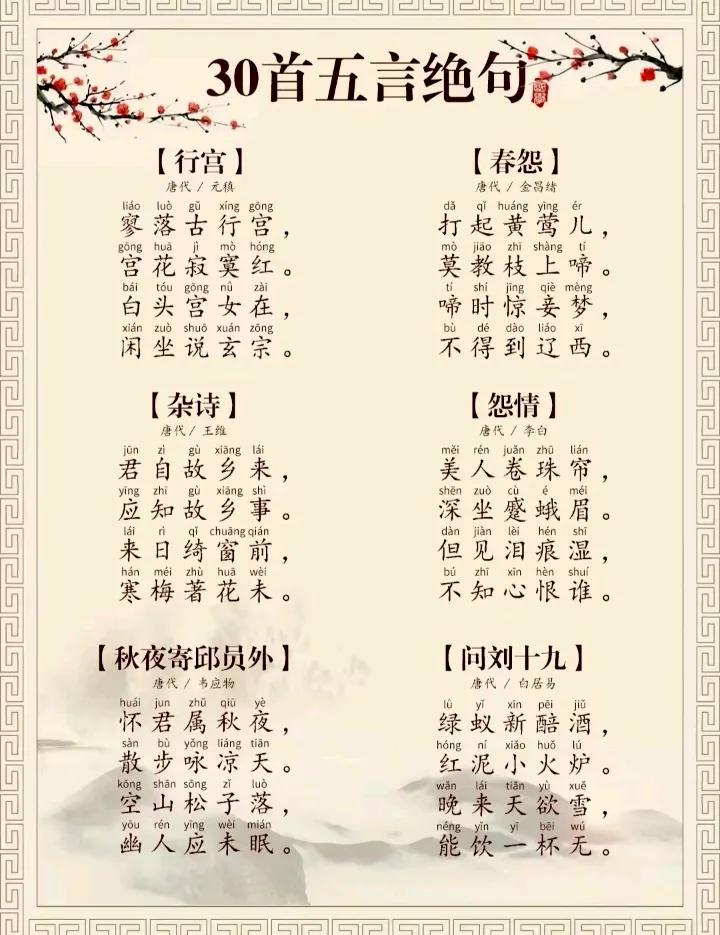 30首五言绝句
【行宫】
唐代 / 元稹
liáo luò gǔ xíng gōng
寥落古行宫，
gōng huā jì mò hóng
宫花寂寞红。
bái tóu gōng nǚ zài
白头宫女在，
xián zuò shuō xuán zōng
闲坐说玄宗。
【春怨】
唐代 / 金昌绪
dǎ qǐ huáng yīng ér
打起黄莺儿，
mò jiāo zhī shàng tí
莫教枝上啼。
tí shí jīng qiè mèng
啼时惊妾梦，
bù dé dào liáo xī
不得到辽西。
【杂诗】
唐代 / 王维
jūn zì gù xiāng lái
君自故乡来，
yīng zhī gù xiāng shì
应知故乡事。
lái rì qǐ chuāng qián
来日绮窗前，
hán méi zhù huā wèi
寒梅著花未。
【怨情】
唐代 / 李白
měi rén juǎn zhū lián
美人卷珠帘，
shēn zuò cù é méi
深坐蹙蛾眉。
dàn jiàn lèi hén shī
但见泪痕湿，
bú zhī xīn hèn shuí
不知心恨谁。
【秋夜寄邱员外】
唐代 / 韦应物
huái jun zhǔ qiū yè
怀君属秋夜，
sàn bù yǒng liáng tiān
散步咏凉天。
kōng shān sōng zǐ luò
空山松子落，
yōu rén yīng wèi mián
幽人应未眠。
【问刘十九】
唐代 / 白居易
lǜ yǐ xīn pēi jiǔ
绿蚁新醅酒，
hóng ní xiǎo huǒ lú
红泥小火炉。
wǎn lái tiān yù xuě
晚来天欲雪，
néng yǐn yī bēi wú
能饮一杯无。